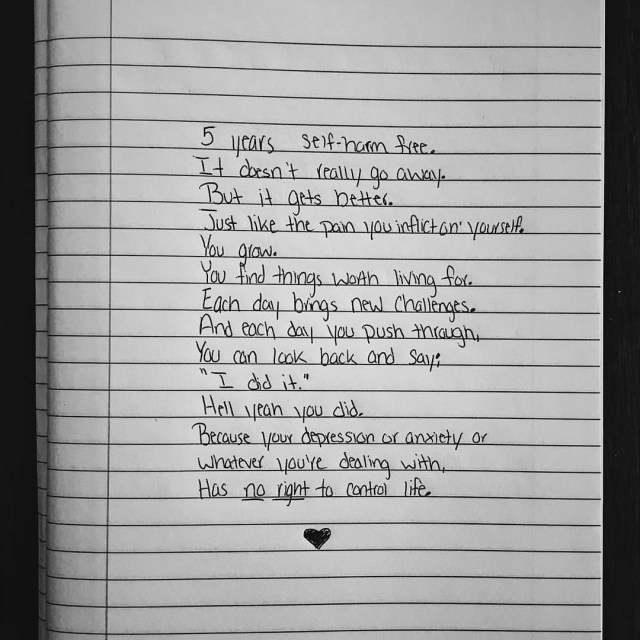 5 years self-harm free.
It doesn't really go away.
But it gets better.
Just like the pain you inflict on' yourself.
You grow.
You find things worth living for.
Each day brings new challenges.
And each day you push through,
You can look back and say;
"I did it."
Hell yeah you did.
Because your depression or anxiety or
whatever you're dealing with,
Has no right to control life.